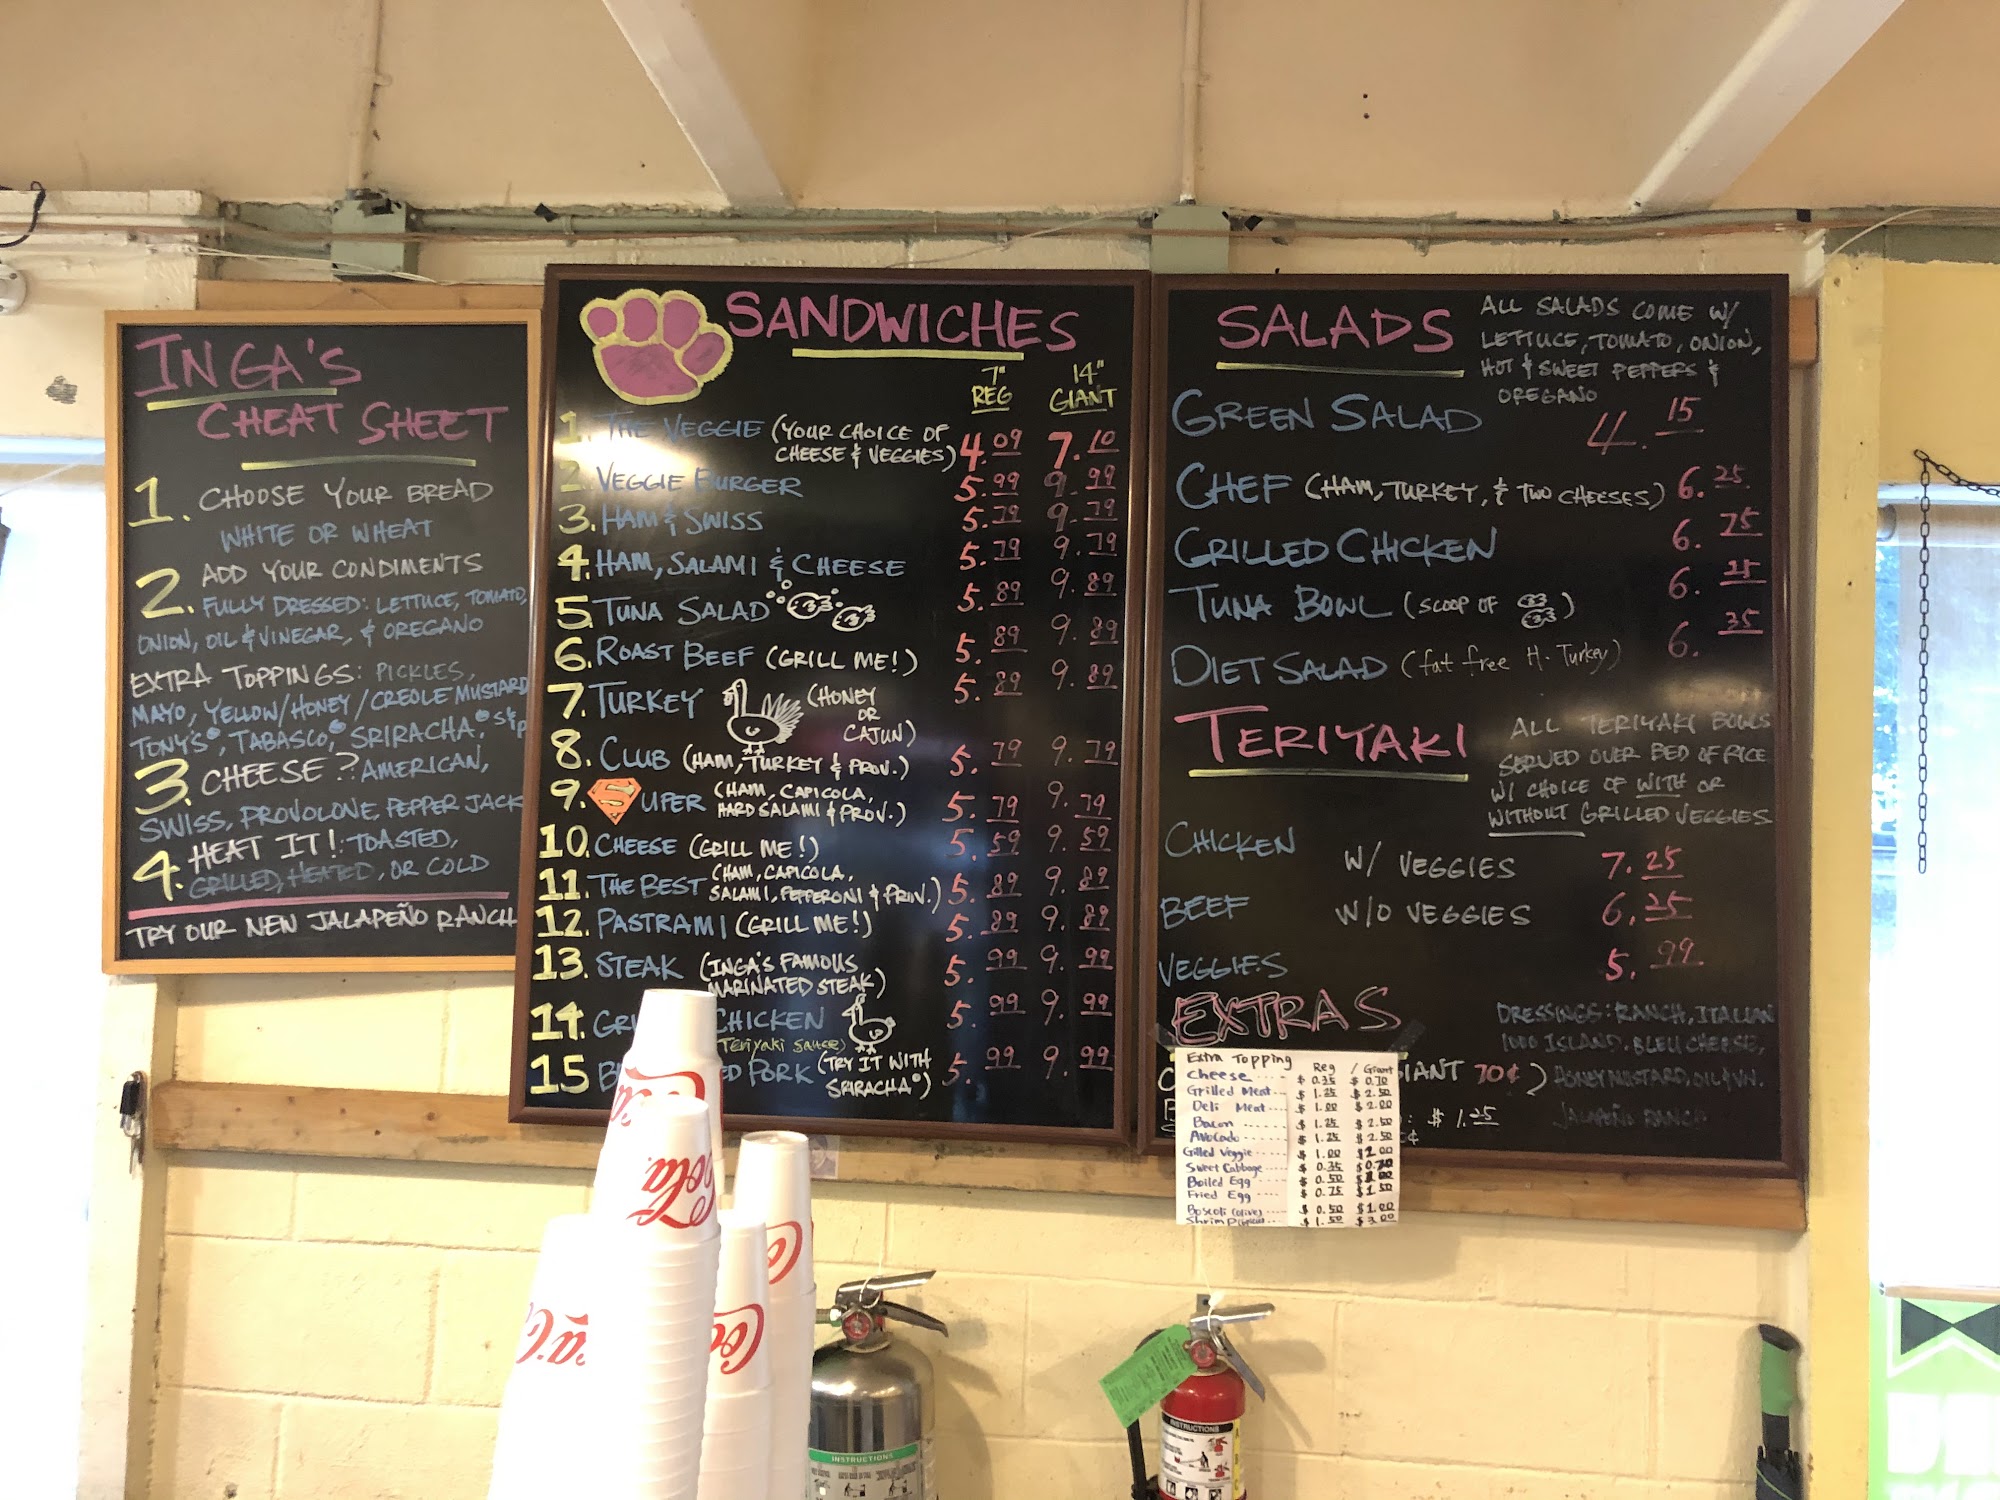 INGA'S
CHEAT SHEET
1. CHOOSE YOUR BREAD
WHITE OR WHEAT
2. ADD YOUR CONDIMENTS
FULLY DRESSED: LETTUCE, TOMATO,
ONION, OIL & VINEGAR, & OREGANO
EXTRA TOPPINGS: PICKLES,
MAYO, YELLOW/HONEY/CREOLE MUSTARD
TONY'S®, TABASCO,® SRIRACHA.® S&P
3. CHEESE? AMERICAN,
SWISS, PROVOLONE, PEPPER JACK
4. HEAT IT!: TOASTED,
GRILLED, HEATED, OR COLD
TRY OUR NEW JALAPEÑO RANCH
SANDWICHES
7" REG 14" GIANT
1. THE VEGGIE (YOUR CHOICE OF CHEESE & VEGGIES) 4.09 7.10
2. VEGGIE BURGER 5.99 9.99
3. HAM & SWISS 5.79 9.79
4. HAM, SALAMI & CHEESE 5.79 9.79
5. TUNA SALAD 5.89 9.89
6. ROAST BEEF (GRILL ME!) 5.89 9.89
7. TURKEY (HONEY OR CAJUN) 5.89 9.89
8. CLUB (HAM, TURKEY & PROV.) 5.79 9.79
9. SUPER (HAM, CAPICOLA, HARD SALAMI & PROV.) 5.79 9.79
10. CHEESE (GRILL ME!) 5.59 9.59
11. THE BEST (HAM, CAPICOLA, SALAMI, PEPPERONI & PROV.) 5.89 9.89
12. PASTRAMI (GRILL ME!) 5.89 9.89
13. STEAK (INGA'S FAMOUS MARINATED STEAK) 5.99 9.99
14. CHICKEN 5.99 9.99
Teriyaki sauce)
15 PORK (TRY IT WITH SRIRACHA®) 5.99 9.99
SALADS
ALL SALADS COME W/
LETTUCE, TOMATO, ONION,
HOT & SWEET PEPPERS &
OREGANO
GREEN SALAD 4.15
CHEF (HAM, TURKEY, & TWO CHEESES) 6.25
GRILLED CHICKEN 6.75
TUNA BOWL (SCOOP OF ) 6.25
DIET SALAD (fat free H. Turkey) 6.35
TERIYAKI
ALL TERIYAKI BOWLS
SERVED OVER BED OF RICE
W/ CHOICE OF WITH OR
WITHOUT GRILLED VEGGIES
CHICKEN W/ VEGGIES 7.25
BEEF W/O VEGGIES 6.25
VEGGIES 5.99
EXTRAS
DRESSINGS: RANCH, ITALIAN
1000 ISLAND, BLEU CHEESE,
HONEY MUSTARD, OIL & VN.
JALAPEÑO RANCH
GIANT 70¢)
: $1.25
Extra Topping Reg / Giant
Cheese --- $0.35 $0.70
Grilled Meat --- $1.25 $2.50
Deli Meat --- $1.00 $2.00
Bacon --- $1.25 $2.50
Avocado --- $1.25 $2.50
Gilled Veggie --- $1.00 $2.00
Sweet Cabbage --- $0.35 $0.70
Boiled Egg --- $0.50 $1.00
Fried Egg --- $0.75 $1.50
Boscoli (olive) --- $0.50 $1.00
$1.50 $3.00
Coca-Cola
INSTRUCTIONS
INSTRUCTIONS